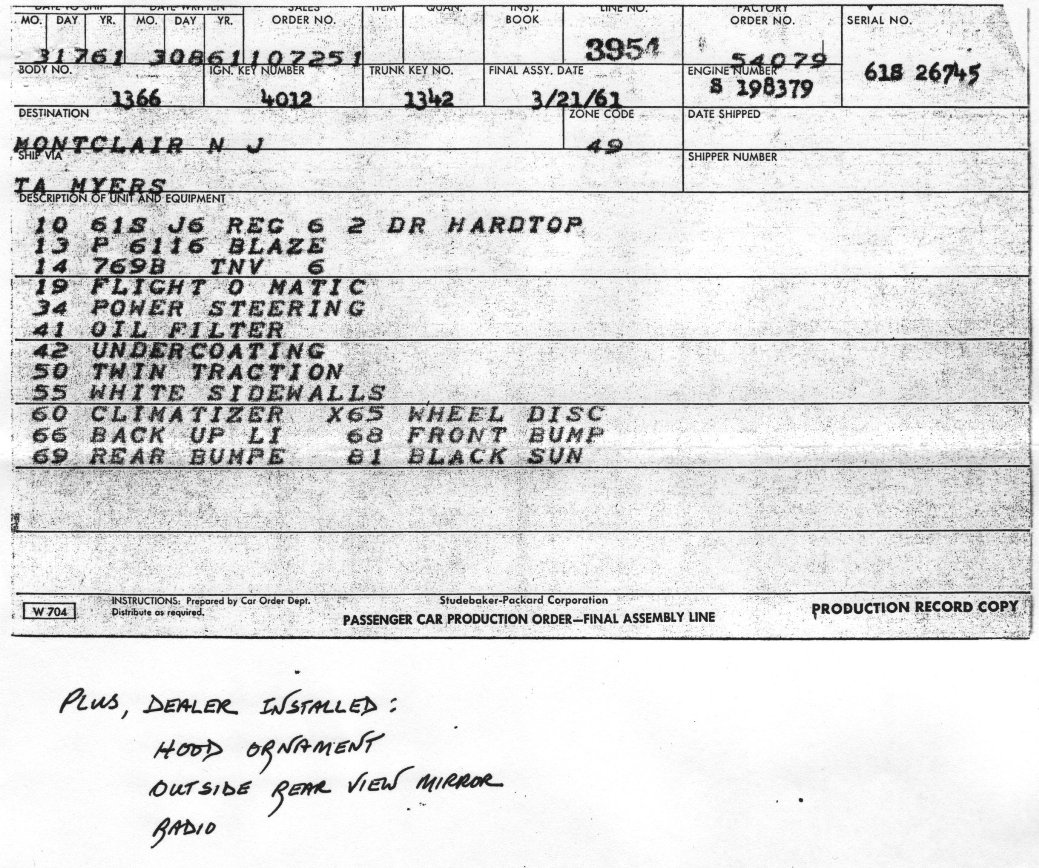 DATE TO SHIP DATE WRITTEN SALES ORDER NO. ITEM QUAN. INST. BOOK LINE NO. FACTORY ORDER NO. SERIAL NO.
MO. DAY YR. MO. DAY YR.
31761 30861107251 3954 54079 61S 26745
BODY NO. IGN. KEY NUMBER TRUNK KEY NO. FINAL ASSY. DATE ENGINE NUMBER
1366 4012 1342 3/21/61 S 198379
DESTINATION ZONE CODE DATE SHIPPED
MONTCLAIR N J 49
SHIP VIA SHIPPER NUMBER
TA MYERS
DESCRIPTION OF UNIT AND EQUIPMENT
10 61S J6 REG 6 2 DR HARDTOP
13 P 6116 BLAZE
14 769B TNV 6
19 FLIGHT O MATIC
34 POWER STEERING
41 OIL FILTER
42 UNDERCOATING
50 TWIN TRACTION
55 WHITE SIDEWALLS
60 CLIMATIZER X65 WHEEL DISC
66 BACK UP LI 68 FRONT BUMP
69 REAR BUMPE 81 BLACK SUN
W 704 INSTRUCTIONS: Prepared by Car Order Dept. Studebaker-Packard Corporation PRODUCTION RECORD COPY
Distribute as required. PASSENGER CAR PRODUCTION ORDER—FINAL ASSEMBLY LINE
PLUS, DEALER INSTALLED:
HOOD ORNAMENT
OUTSIDE REAR VIEW MIRROR
RADIO